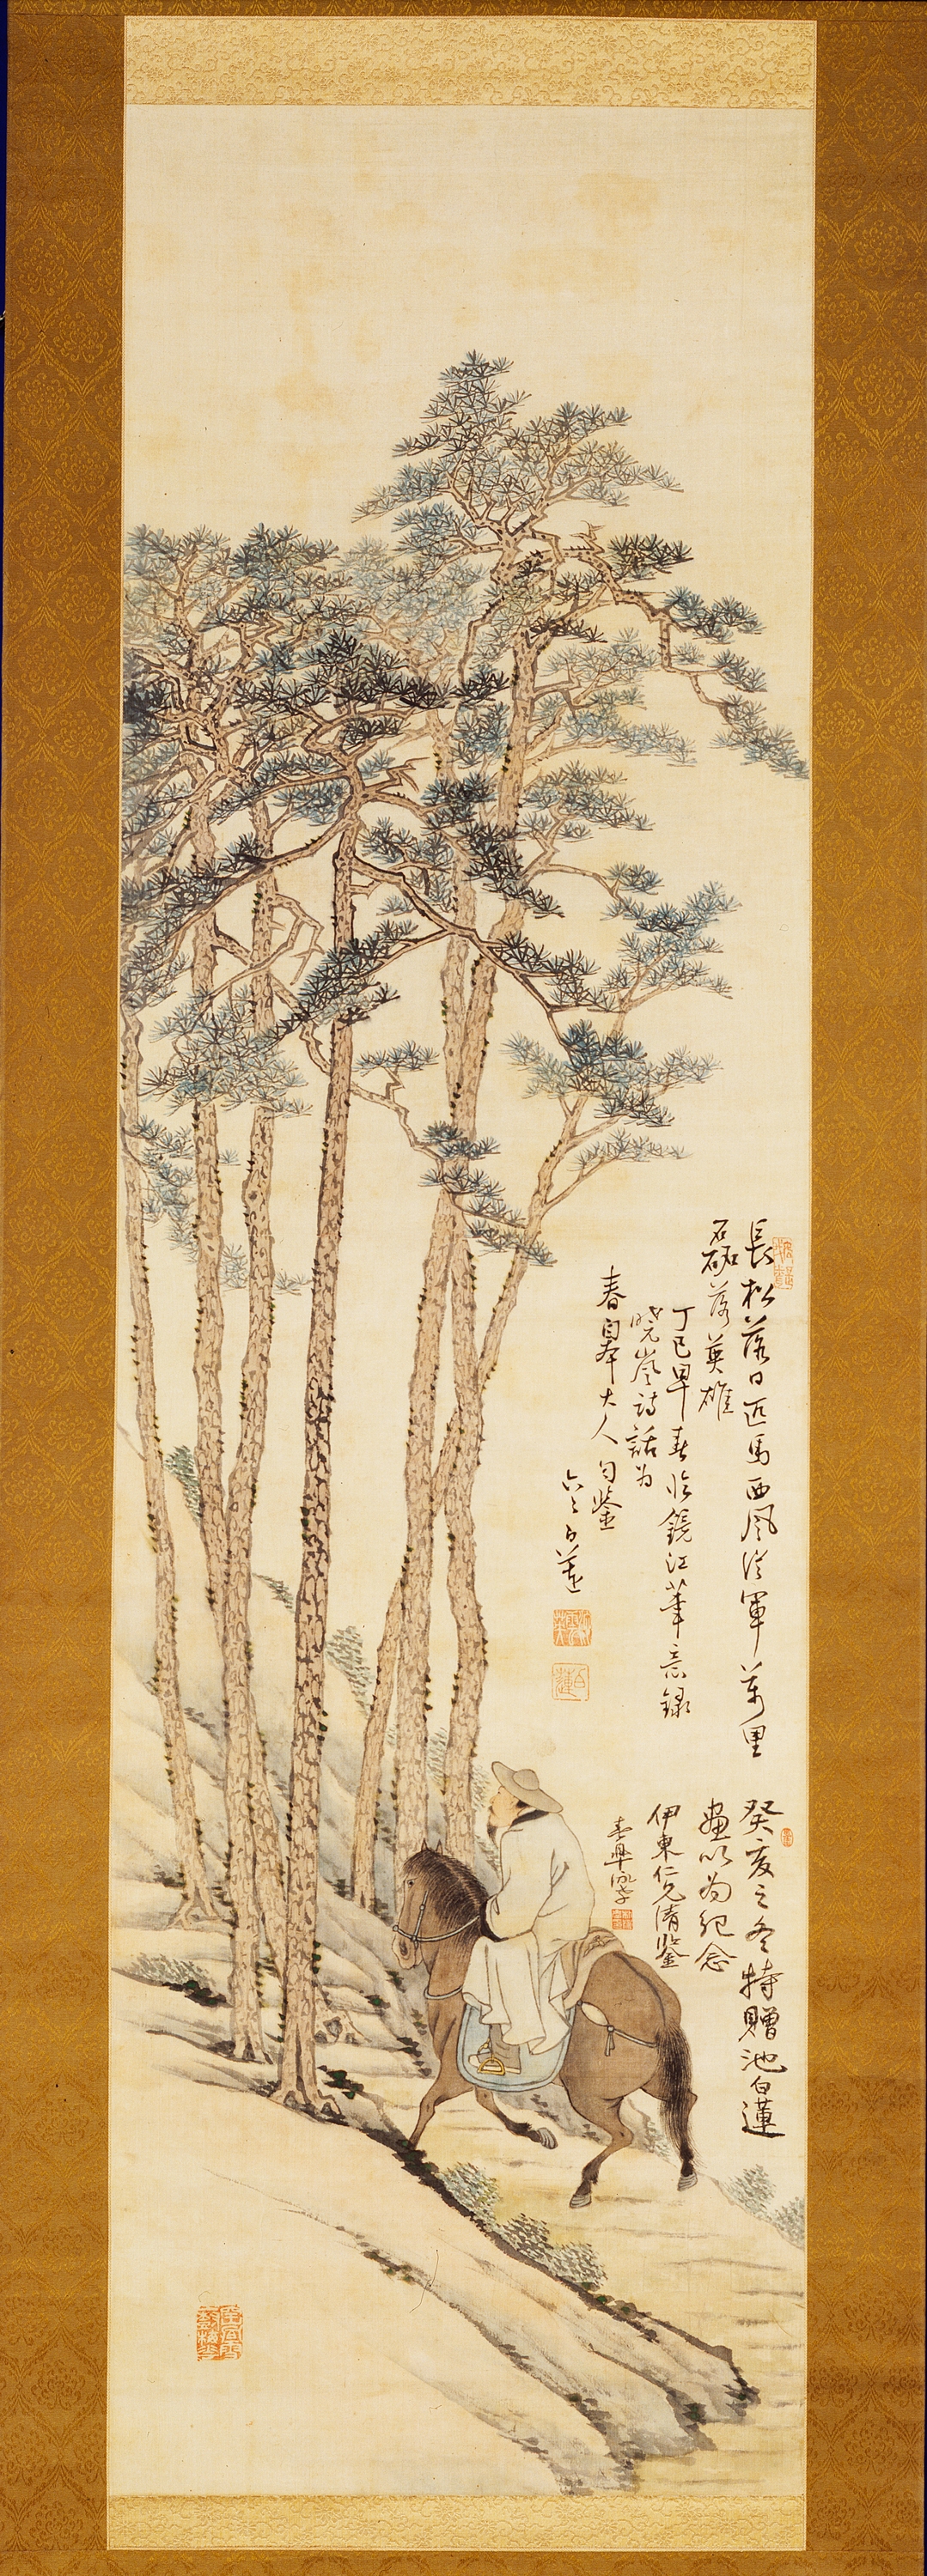 長松落日匹馬西風從軍萬里
磊落英雄
丁巳早春臨鏡江筆意錄
曉嵐詩話为
春皋大人勻鑒
六三白蓮
白蓮
癸亥之冬特贈池白蓮
畫以为紀念
伊東仁兄清鑒